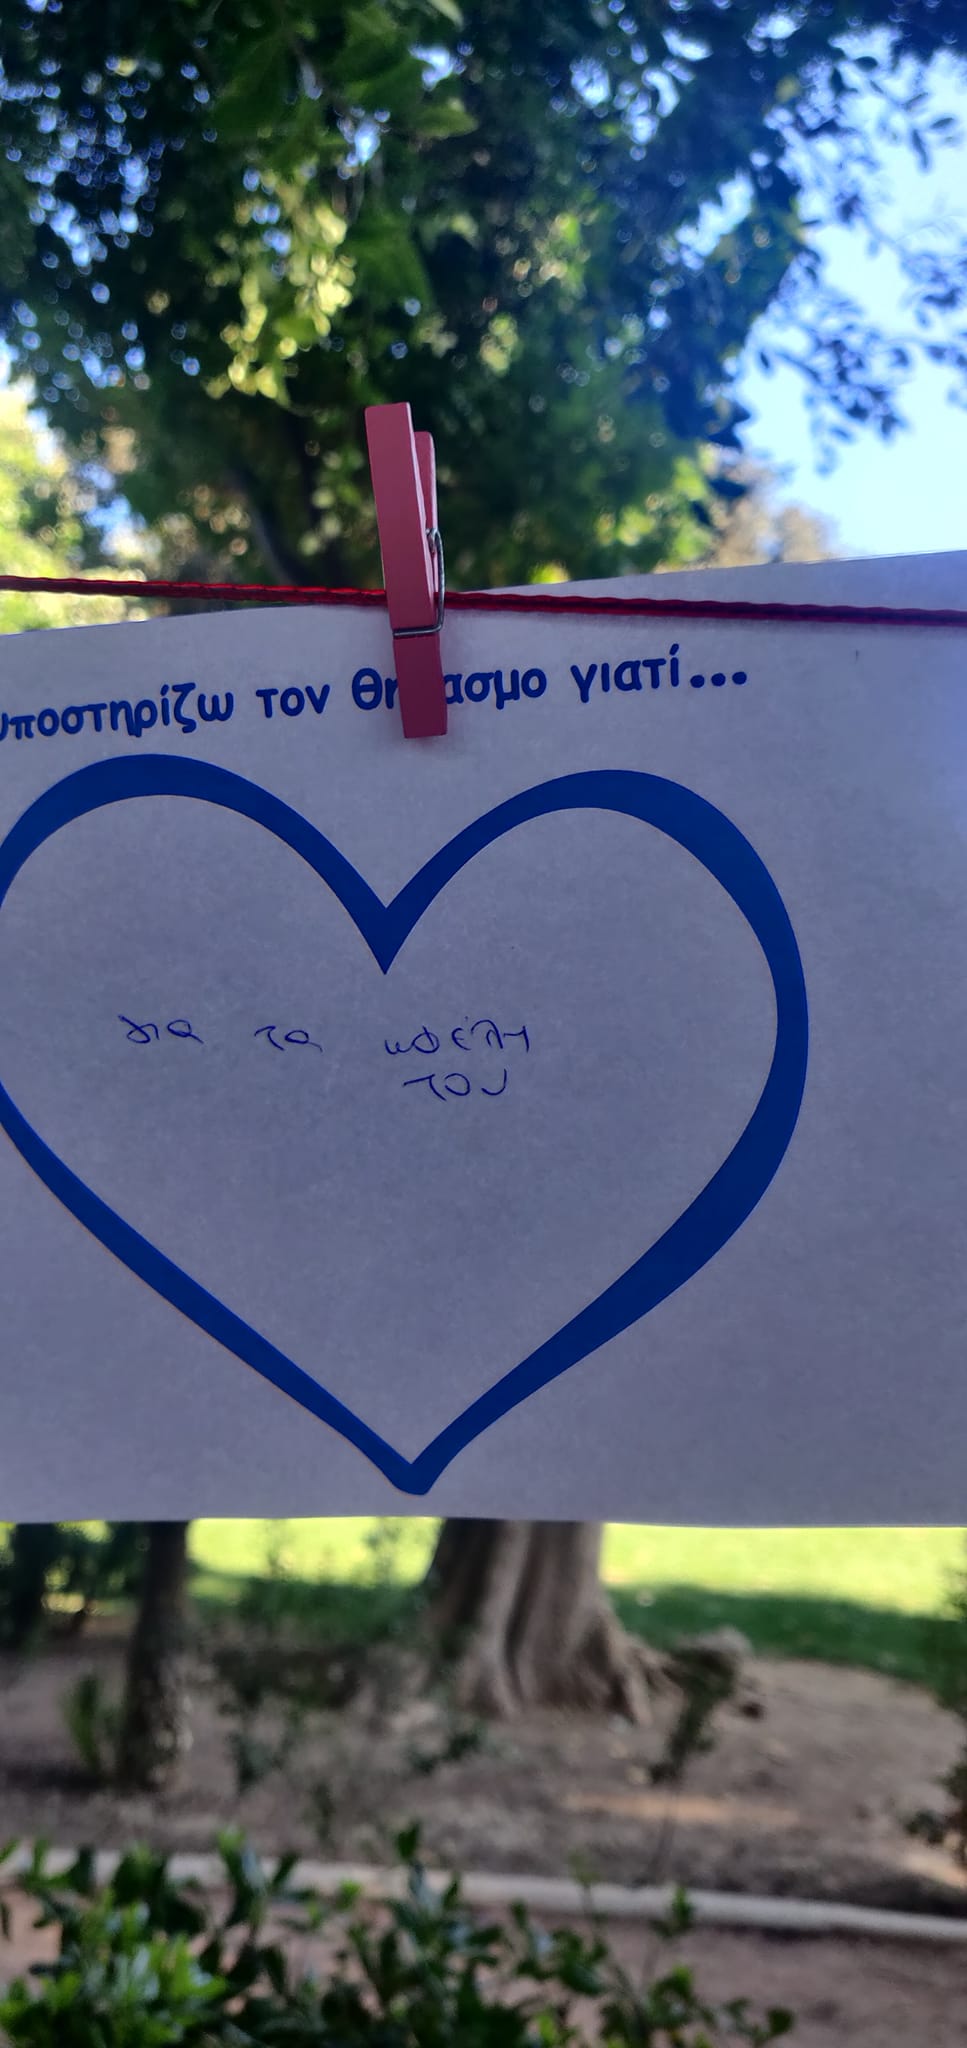 υποστηρίζω τον θηλασμο γιατί...
για τα ωφέλη
του